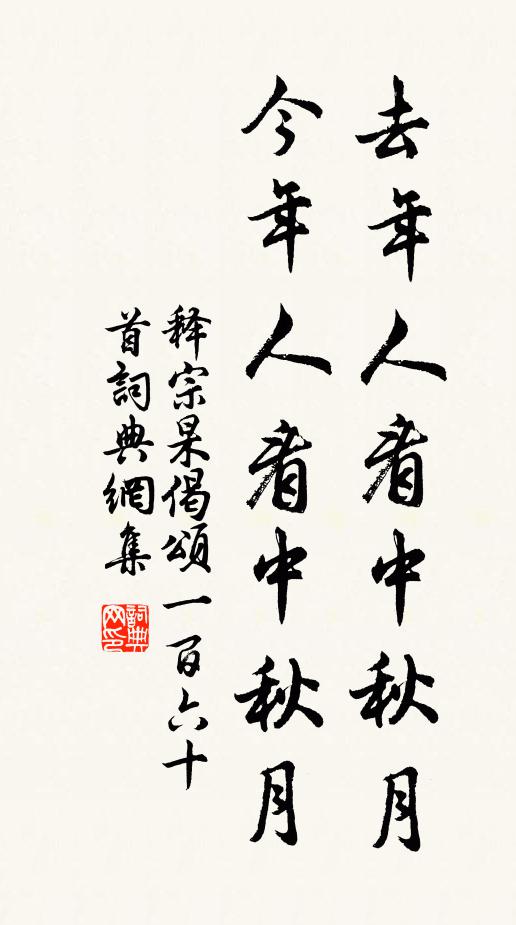 去年人看中秋月
今年人看中秋月
释宗杲偈頌一百六十
首詞典網集
詞典网印